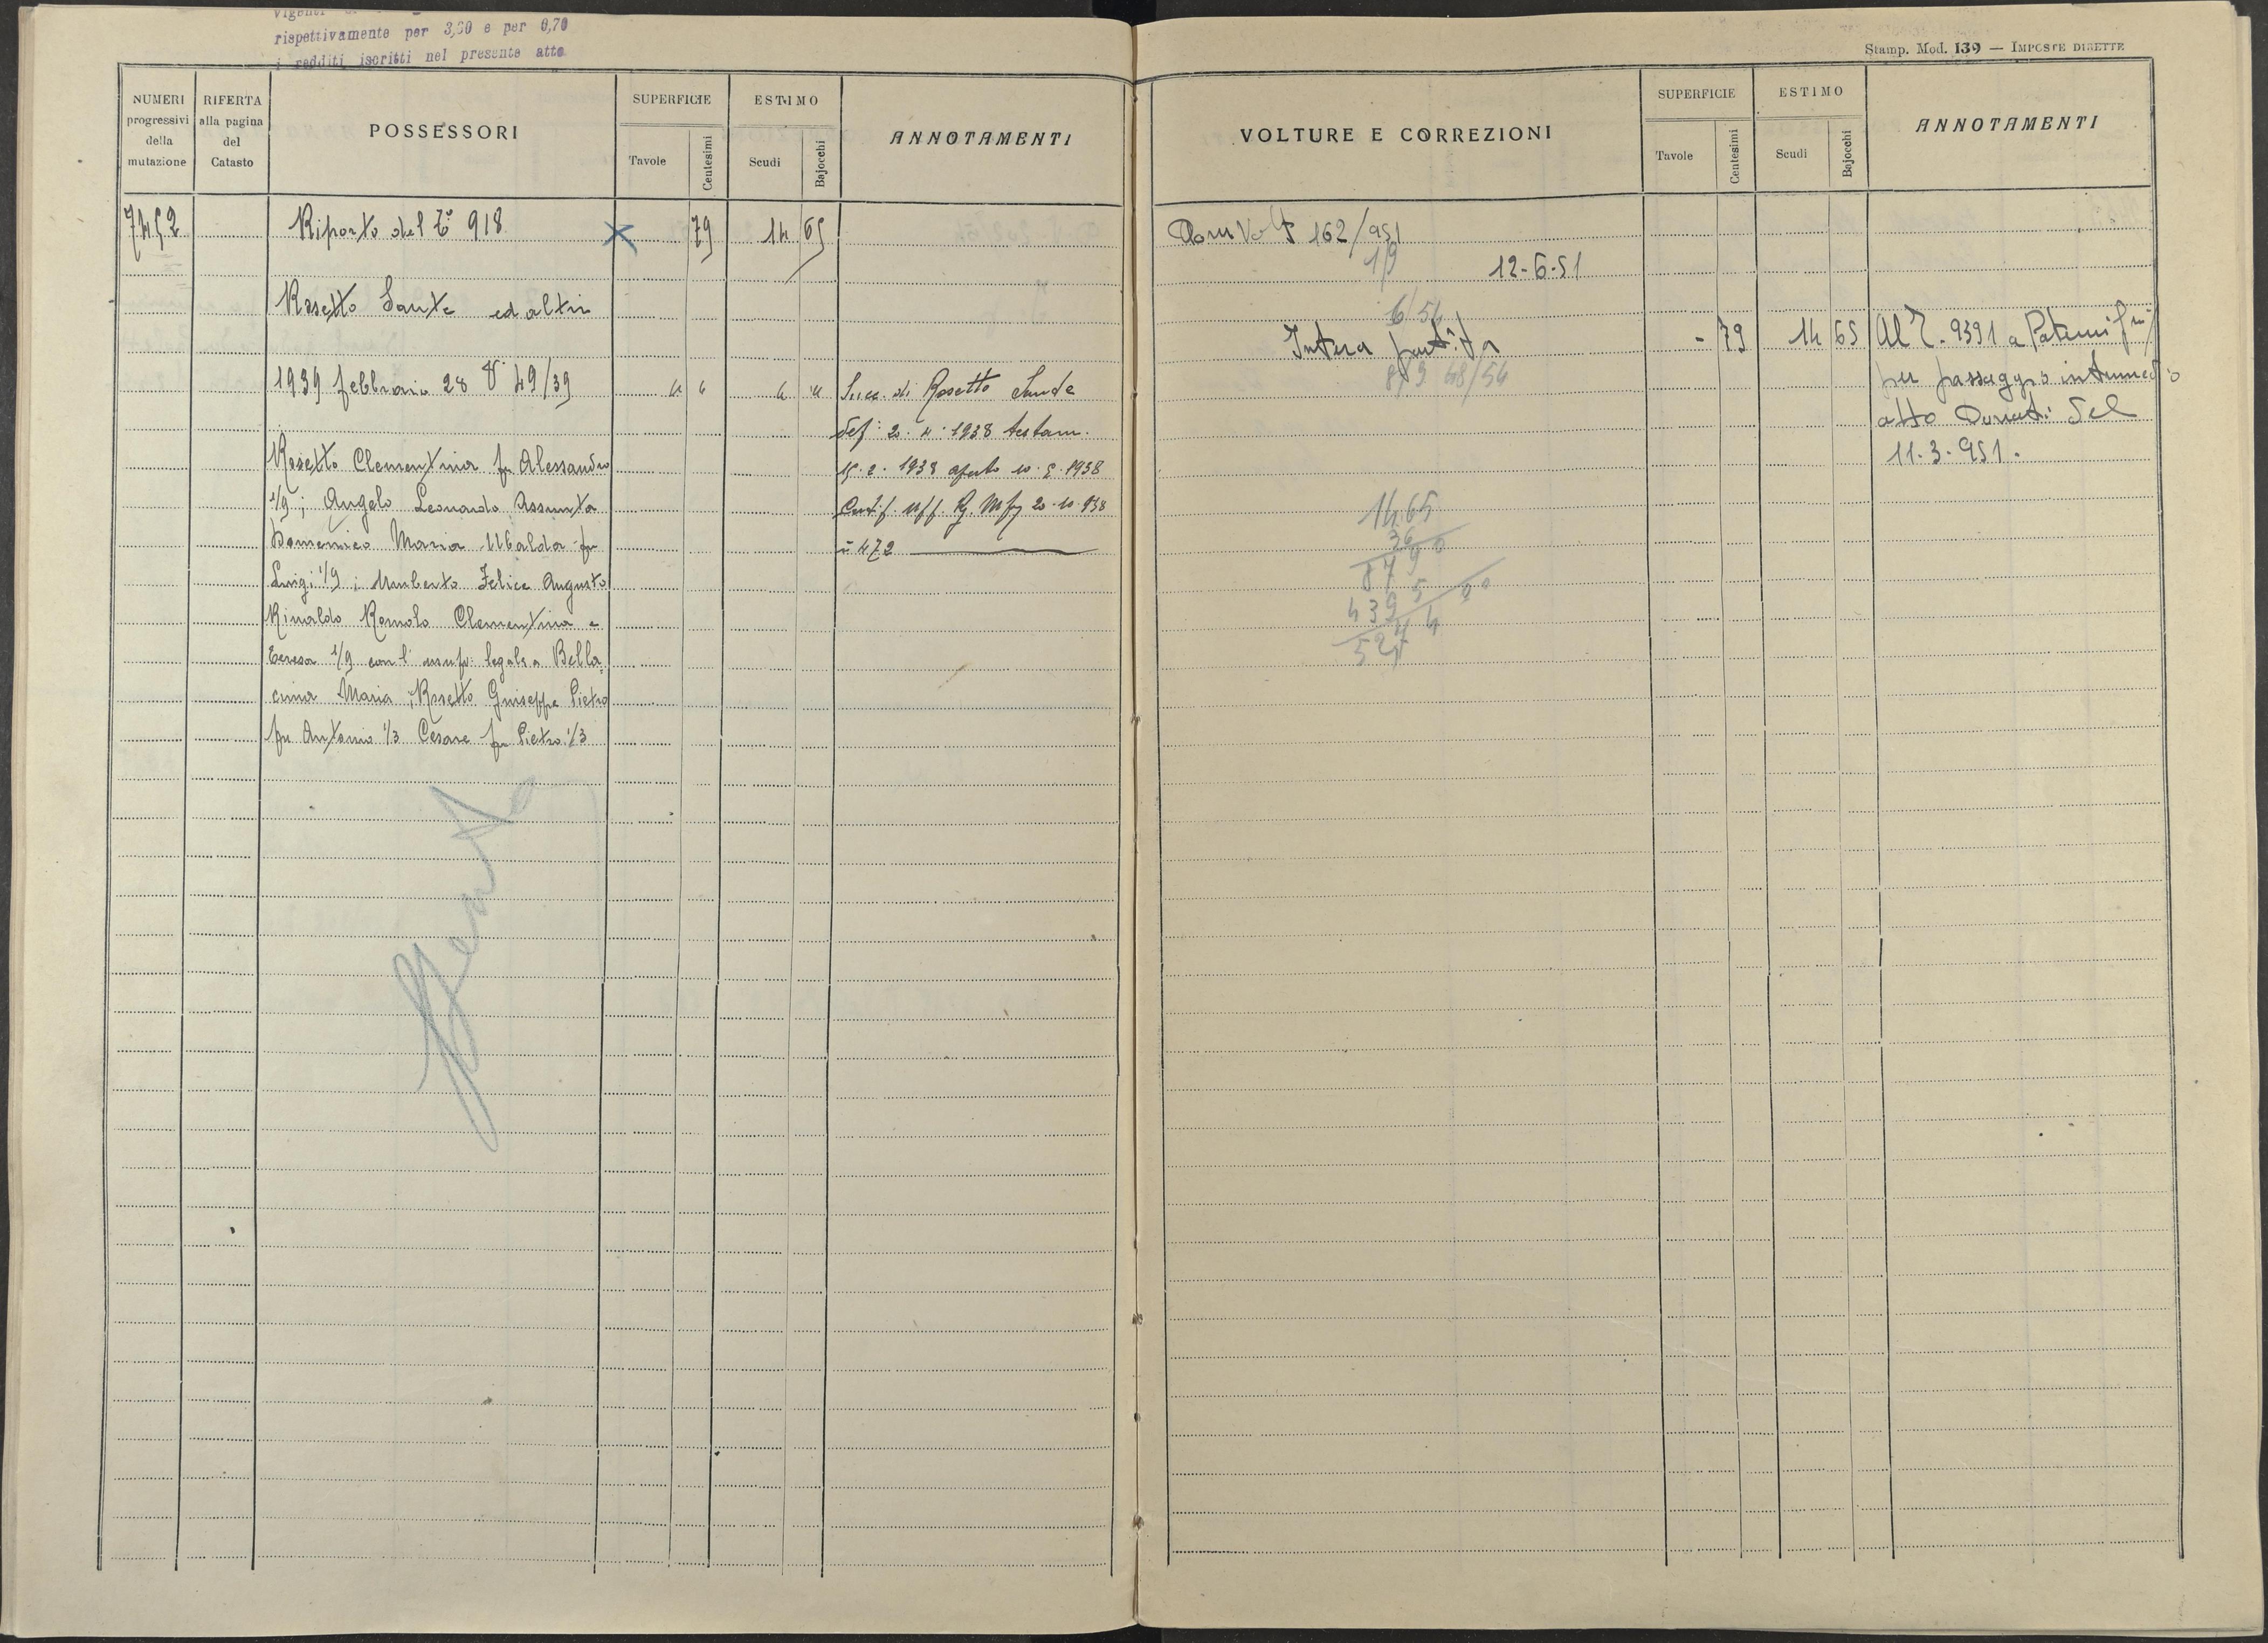 rispettivamente per 3,60 e per 0,70
i redditi iscritti nel presente atto
NUMERI progressivi della mutazione
RIFERTA alla pagina del Catasto
POSSESSORI
SUPERFICIE
Tavole
Centesimi
ESTIMO
Scudi
Bajocchi
ANNOTAMENTI
7452 Riporto del T° 918 79 14 65
Rosetto Sante ed altri
1939 febbraio 28 V° 49/39 " " " "
Rosetto Clementina fu Alessandro
1/9; Angelo Leonardo Assunta
Domenico Maria Ubalda fu
Luigi 1/9; Umberto Felice Augusto
Rinaldo Romolo Clementina e
Teresa 1/9 con l' usuf. legale a Bella
cima Maria; Rosetto Giuseppe Pietro
fu Antonio 1/3 Cesare fu Pietro 1/3
Succ. di Rosetto
def. 2. 4. 1938 testam.
15. 2. 1938 aperto 10. 5. 1938
Certif. Uff. R. 20-10-938
n 472
Spenta
Stamp. Mod. 139 — IMPOSTE DIRETTE
VOLTURE E CORREZIONI
SUPERFICIE
Tavole
Centesimi
ESTIMO
Scudi
Bajocchi
ANNOTAMENTI
Dom Volt 162/951
1/9
12-6-51
6/54
Intera partita - 79 14 65
48/54
Al T. 9391 a
per passaggio intermedio
atto Donati del
11.3.951.
14.65
36
879
4395